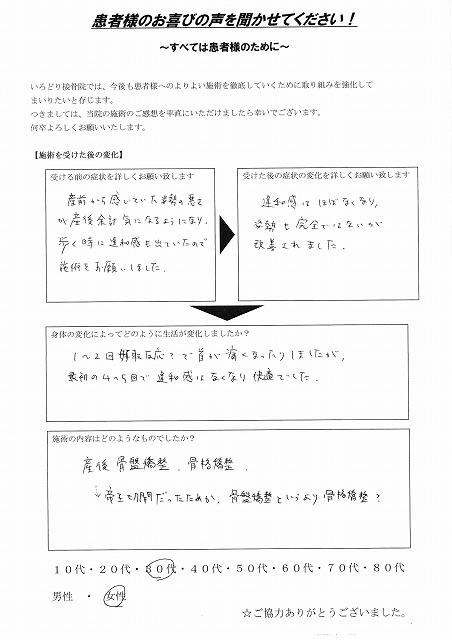 患者様のお喜びの声を聞かせてください！
～すべては患者様のために～
いろどり接骨院では、今後も患者様へのよりよい施術を徹底していくために取り組みを強化して
まいりたいと存じます。
つきましては、当院の施術のご感想を率直にいただけましたら幸いでございます。
何卒よろしくお願いいたします。
【施術を受けた後の変化】
受ける前の症状を詳しくお願い致します
産前から感じていた姿勢の悪さ
が産後余計気になるようになり、
歩く時に違和感も出ていたので
施術をお願いしました。
受けた後の症状の変化を詳しくお願い致します
違和感はほぼなくなり、
姿勢も完全ではないが
改善されました。
身体の変化によってどのように生活が変化しましたか？
1～2回 反応？で首が痛くなったりしましたが、
最初の4～5回で違和感はなくなり快適でした。
施術の内容はどのようなものでしたか？
産後骨盤矯整、骨格矯整、
↓帝王切開だったためか、骨盤矯整というより骨格矯整？
１０代・２０代・３０代・４０代・５０代・６０代・７０代・８０代
男性　・　女性
☆ご協力ありがとうございました。